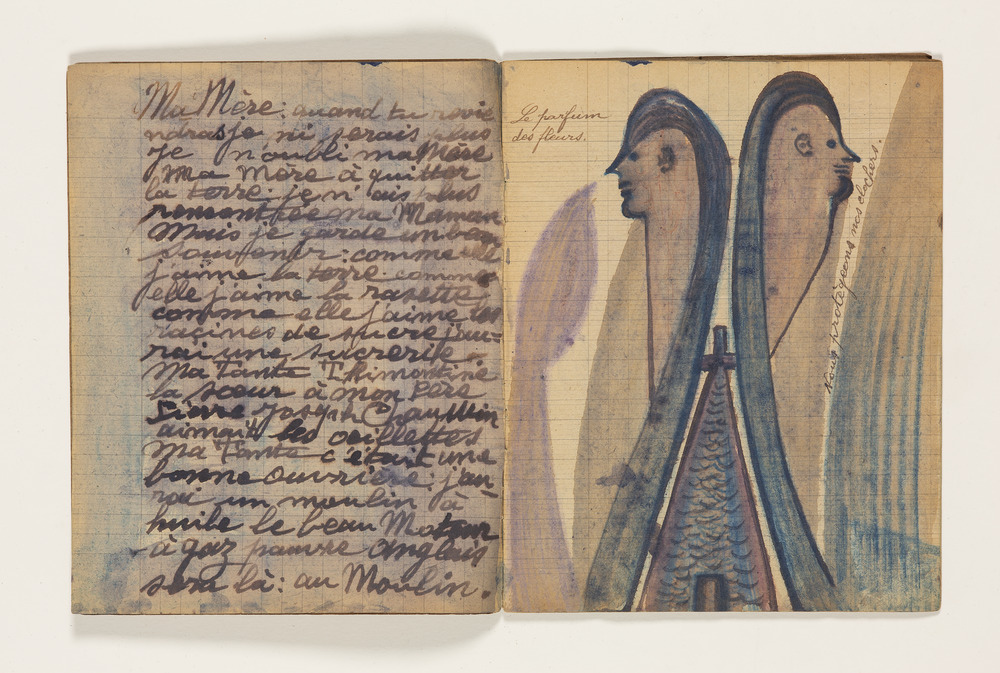 Ma Mère: quand tu revie
ndras je ni serais plus
Je n'oubli ma Mère
Ma Mère à quitter
la terre. je n'ais plus
remontrée ma Maman
Mais je garde un beau
souvenir: comme elle
j'aime la terre comme
elle j'aime la rasette
comme elle j'aime les
racines de sucre j'au-
rai une sucrerie.
Ma Tante
la sœur à mon Père
Pierre Joseph
aimait les oeillettes
Ma Tante c'était une
bonne ouvrière. j'au-
rai un moulin à
huile le beau Moteur
à gaz pauvre Anglais
sera là: au Moulin.
Le parfum
des fleurs.
Nous protégeons nos clochers.